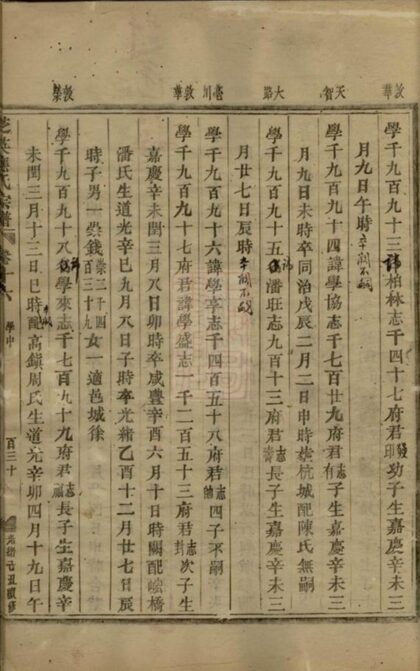 敦華
天智
大路
亳川
敦華
敦榮
學千九百九十三諱柏林志千四十七府君發耶功子生嘉慶辛未三
月九日午時卒闕不嗣
學千九百九十四諱學協志千七百廿九府君志有子生嘉慶辛未三
月九日未時卒同治戊辰二月二日申時塟杭城配陳氏無嗣
學千九百九十五諱潘旺志九百十三府君志齋長子生嘉慶辛未三
月廿七日辰時卒闕不嗣
學千九百九十六諱學享志千四百五十八府君志帥四子不嗣
學千九百九十七府君諱學盛志一千二百五十三府君志封次子生
嘉慶辛未閏三月八日卯時卒咸豐辛酉六月十日時闕配嵫橋
潘氏生道光辛巳九月八日子時卒光緒乙酉十二月廿七日辰
時子男一崇錢崇二千四百三十九女一適邑城徐
學千九百九十八諱學來志千七百九十九府君志長子生嘉慶辛
未閏三月十三日巳時配高鎮周氏生道光辛卯四月十九日午
芝英應氏宗譜
學中
百三十
光緒己丑徵修